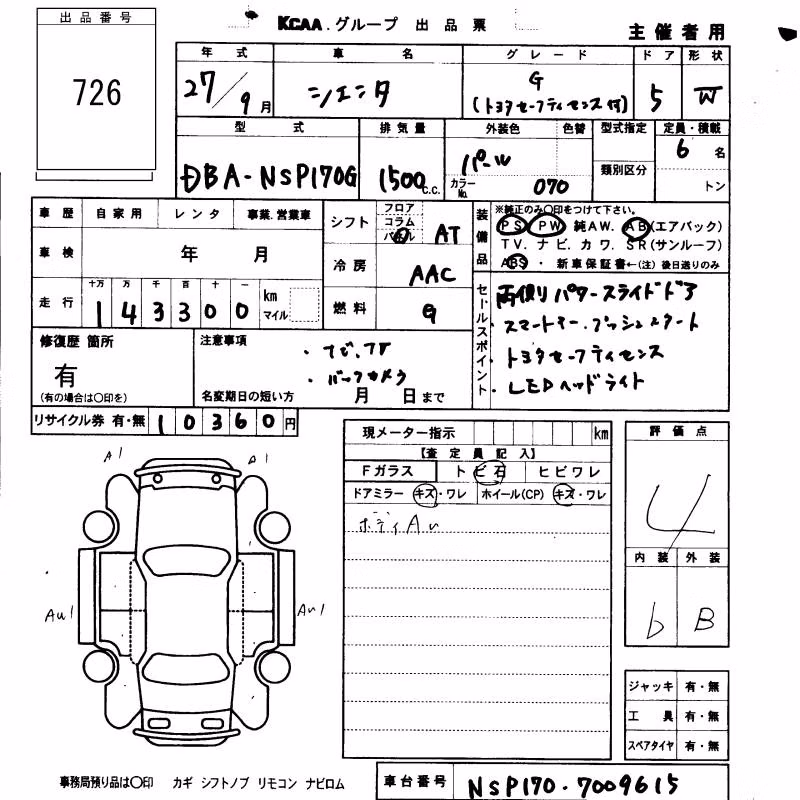 出品番号
726
KCAA.グループ 出品票
主催者用
年式 車名 グレード ドア 形状
27/9月 シエンタ G (トヨタセーフティセンス付) 5 W
型式 排気量 外装色 色替 型式指定 定員・積載
DBA-NSP170G 1500c.c. パール 類別区分 6名
カラーNo. 070 トン
車歴 自家用 レンタ 事業.営業車
車検 年 月
走行 十万 万 千 百 十 一 km マイル
1 4 3 3 0 0
シフト フロア コラム パネル AT
冷房 AAC
燃料 G
装備品
※純正のみ〇印をつけて下さい。
PS PW 純AW. AB(エアバック)
TV. ナビ. カワ. SR(サンルーフ)
ABS ・ 新車保証書←(注) 後日送りのみ
セールスポイント
両側パワースライドドア
・スマートキー.プッシュスタート
・トヨタセーフティセンス
・LEDヘッドライト
修復歴 箇所
有
(有の場合は〇印を)
注意事項
・ナビ,TV
・バックカメラ
名変期日の短い方 月 日まで
リサイクル券 有・無 10360円
現メーター指示 km
【査定員記入】
Fガラス トビ石 ヒビワレ
ドアミラー キズ・ワレ ホイール(CP) キズ・ワレ
ボディAu
評価点
4
内装 外装
b B
A1 A1
Au1 Au1
ジャッキ 有・無
工具 有・無
スペアタイヤ 有・無
事務局預り品は〇印 カギ シフトノブ リモコン ナビロム
車台番号 NSP170-7009615